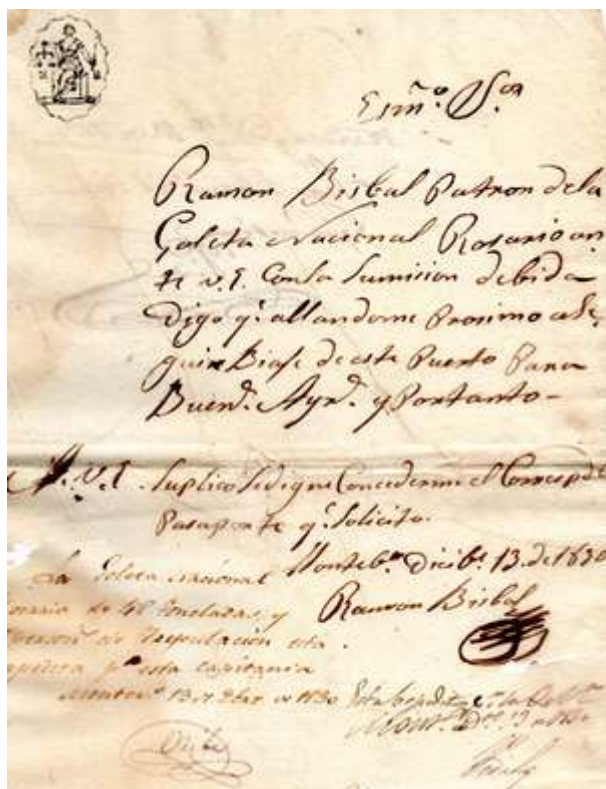 Exmo. Sor
Ramon Bisbal Patron dela
Goleta Nacional Rosario an
te v.E. Conla Sumision debida
Digo q.e allandome Prosimo a Se
guir Biaje de este Puerto Para
Buen.s Ayr.s y Portanto-
A. V.E. Suplico Sedigne Concederme el Corresp.de
Pasaporte q.e Solicito.
Monteb.o Dicib.e 13. de 1830
Ramon Bisbal
La Goleta nacional
de 48 toneladas y
de tripulacion esta
p.r esta capitania
Montev.o 13 de 1830